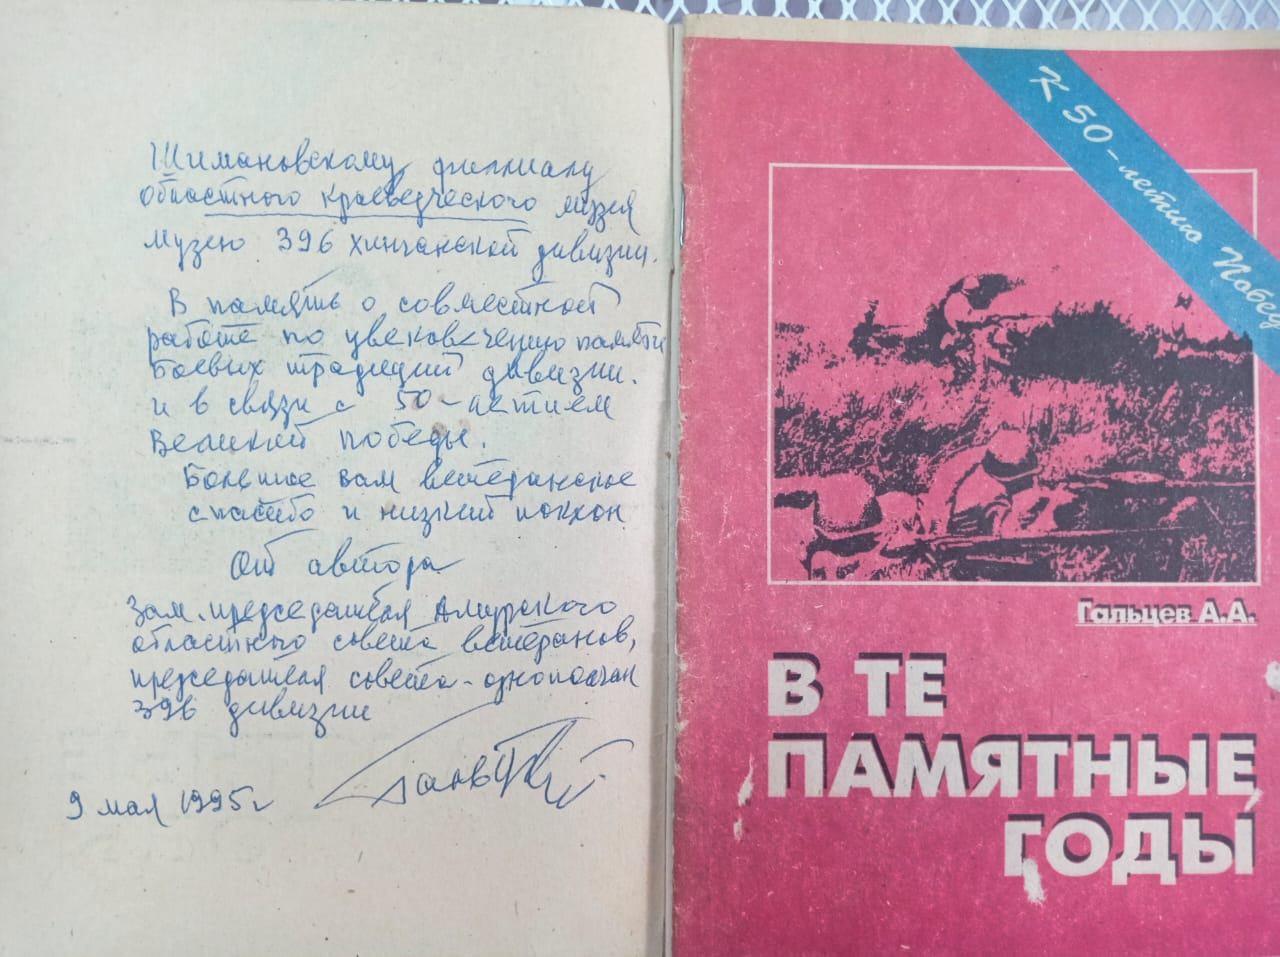 Шимановскому филиалу
областного краеведческого музея
музею 396 хинганской дивизии.
В память о совместной
работе по увековечению памяти
боевых традиций дивизии.
и в связи с 50-летием
Великой победы.
Большое вам ветеранское
спасибо и низкий поклон
От автора
Зам. председателя Амурского
областного совета ветеранов,
председателя совета-однополчан
396 дивизии
9 мая 1995г
К 50-летию Побед
Гальцев А.А.
В ТЕ
ПАМЯТНЫЕ
ГОДЫ